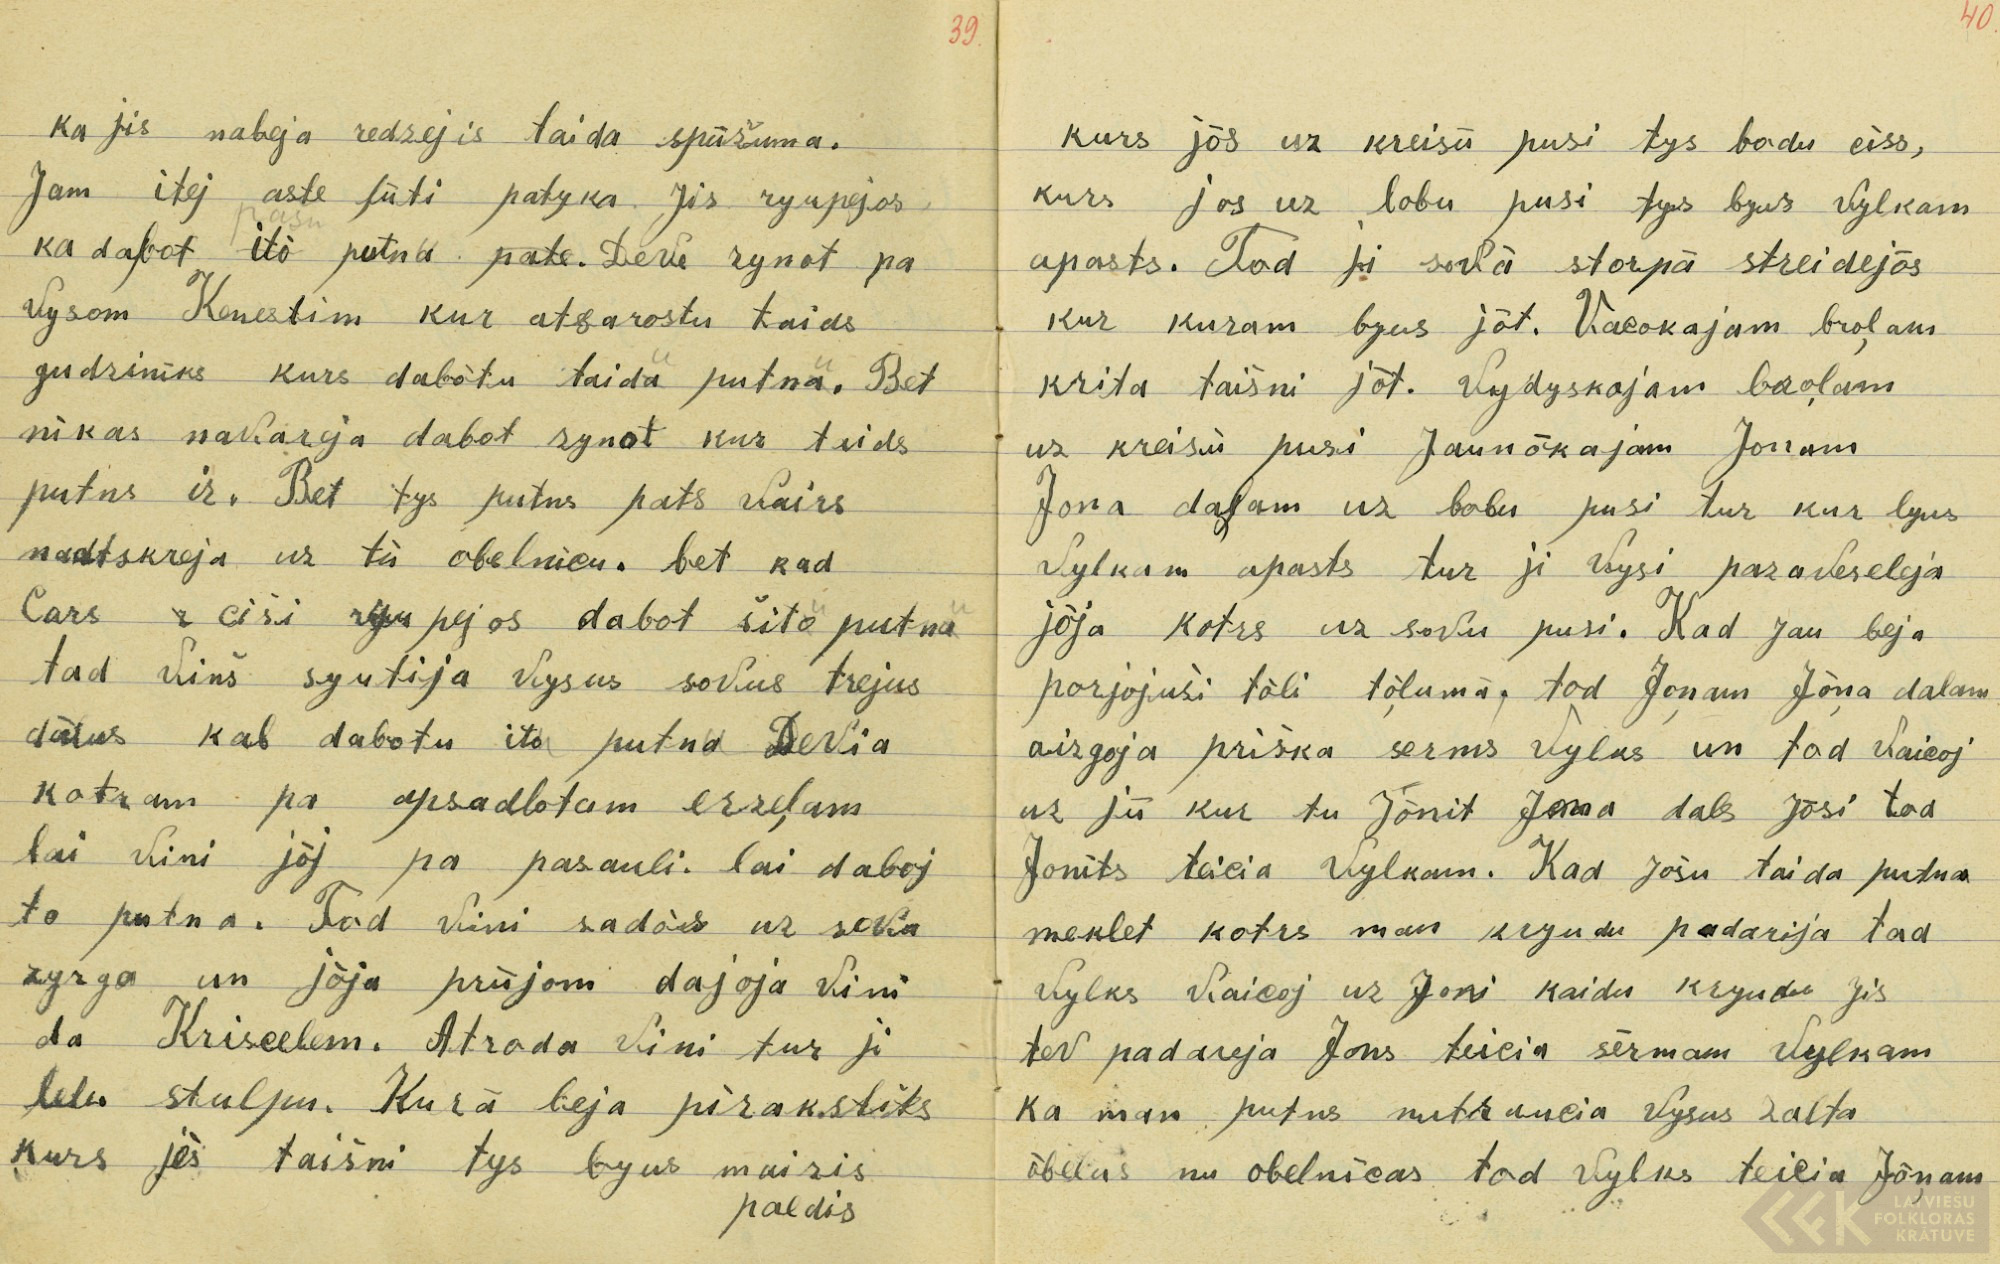 39.
ka jis nabeja redzejis taida spūžuma.
Jam itej aste ļūti patyka jis ryupejos
pašu
ka dabot itò putna pate. Deve zynot pa
vysom Kenestim kur atsarostu taids
gudriniks kurs dabòtu taidu putnu. Bet
nikas navareja dabot zynot kur taids
putns ir. Bet tys putns pats vairs
naatskreja uz tū obelnicu. bet kad
Cars ciši ryupejos dabot šitò putnu
tad viņš syutija vysus sovus trejus
dālus kab dabotu ito putna Devia
katram pa apsadlotam erzeļam
lai vini jòj pa pasauli. lai daboj
to putna. Tad vini sadòis uz sova
zyrga un jòja prūjom dajoja vini
da Kriscelem. Atroda vini tur ji
lelu stulpu. Kurā beja pìrakstits
kurs jès taišni tys byus maizis
paedis
40.
kurs jōs uz kreisū pusi tys badu eiss,
kurs jos uz lobu pusi tys byus vylkam
apasts. Tad ji sovā storpā streidejōs
kur kuram byus jōt. Vacokajam broļam
krita taišni jōt. Vydyskajam braļam
uz kreisū pusi Jaunōkajam Jonam
Jona daļam uz lobu pusi tur kur byus
vylkam apasts tur ji vysi pazaveseleja
jōja kotrs uz sovu pusi. Kad jau beja
porjojuši tōli tōlumā, tod Joņam Jōņa dalam
aizgoja priška serms vylks un tad vaicoj
uz jū kur tu Jōnit Jona dals jōsi tod
Jonits teicia vylkam. Kad jōšu taida putna
meklet kotrs man kryudu padarija tad
vylks vaicoj uz Joni kaidu kryudu jis
tev padareja Jons teicia sērmam vylkam
ka man putns nutraucia vysus zalta
ōbelus nu obelnicas tod vylks teicia Jōņam
LATVIEŠU
FOLKLORAS
KRĀTUVE